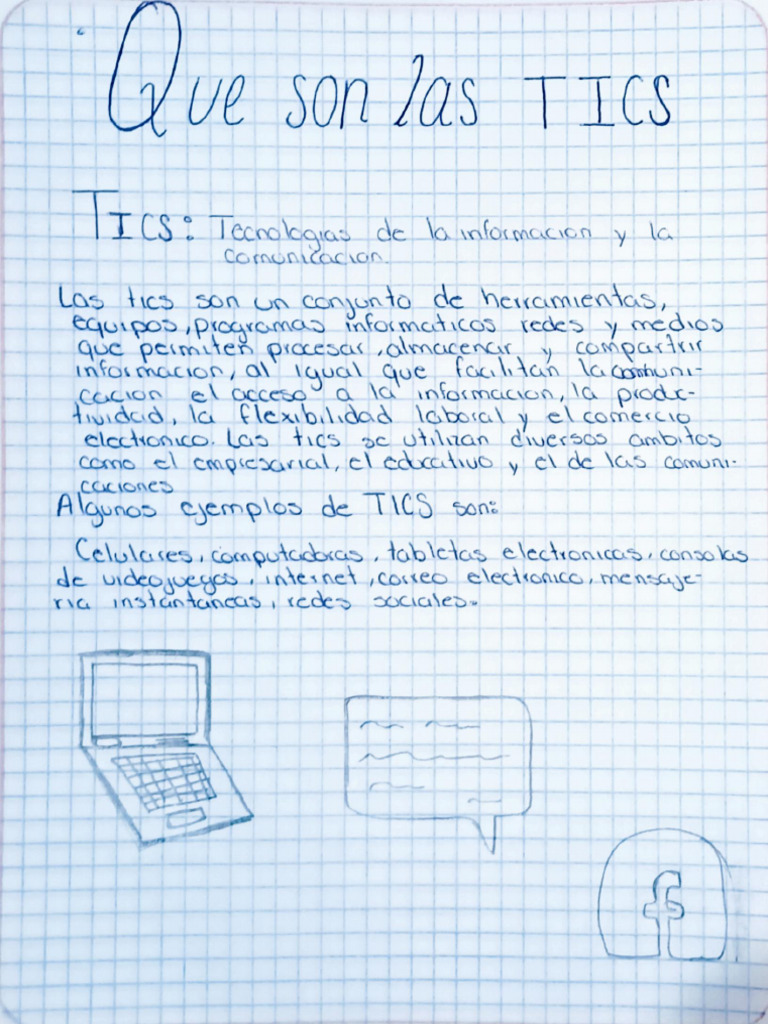 Que son las TICS
TICS: Tecnologias de la informacion y la
comunicacion.
Las tics son un conjunto de herramientas,
equipos, programas informaticos redes y medios
que permiten procesar, almacenar y compartrir
informacion, al igual que facilitan la comuni-
cacion el acceso a la informacion, la produc-
tividad, la flexibilidad laboral y el comercio
electronico. Las tics se utilizan diversos ambitos
como el empresarial, el educativo y el de las comuni-
caciones
Algunos ejemplos de TICS son:
Celulares, computadoras, tabletas electronicas, consolas
de videojuegos, internet, correo electronico, mensaje-
ria instantaneas, redes sociales.
f